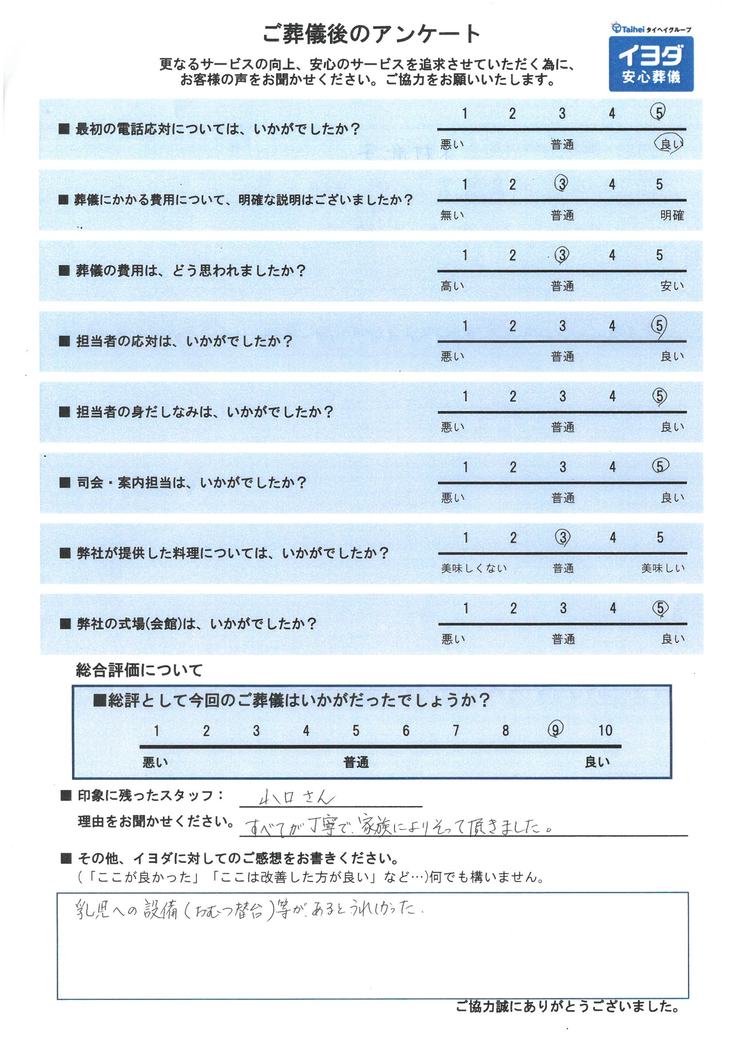 ご葬儀後のアンケート
Taihei タイヘイグループ
イヨダ
安心葬儀
更なるサービスの向上、安心のサービスを追求させていただく為に、
お客様の声をお聞かせください。ご協力をお願いいたします。
■ 最初の電話応対については、いかがでしたか？
1 2 3 4 5
悪い 普通 良い
■ 葬儀にかかる費用について、明確な説明はございましたか？
1 2 3 4 5
無い 普通 明確
■ 葬儀の費用は、どう思われましたか？
1 2 3 4 5
高い 普通 安い
■ 担当者の応対は、いかがでしたか？
1 2 3 4 5
悪い 普通 良い
■ 担当者の身だしなみは、いかがでしたか？
1 2 3 4 5
悪い 普通 良い
■ 司会・案内担当は、いかがでしたか？
1 2 3 4 5
悪い 普通 良い
■ 弊社が提供した料理については、いかがでしたか？
1 2 3 4 5
美味しくない 普通 美味しい
■ 弊社の式場(会館)は、いかがでしたか？
1 2 3 4 5
悪い 普通 良い
総合評価について
■総評として今回のご葬儀はいかがだったでしょうか？
1 2 3 4 5 6 7 8 9 10
悪い 普通 良い
■ 印象に残ったスタッフ： 小口さん
理由をお聞かせください。 すべてが丁寧で、家族によりそって頂きました。
■ その他、イヨダに対してのご感想をお書きください。
(「ここが良かった」「ここは改善した方が良い」など…)何でも構いません。
乳児への設備(おむつ替台)等が、あるとうれしかった.
ご協力誠にありがとうございました。